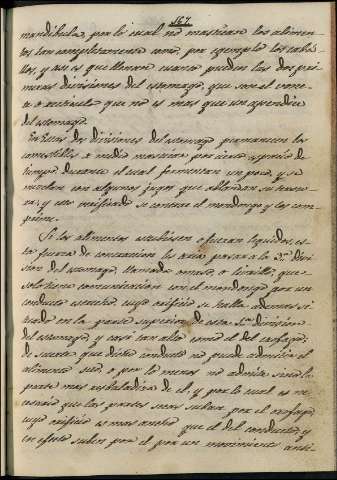 167.
mandibula, por lo cual no mascaran los alimen-
tos tan completamente como, por egemplo los caba-
llos, y asi es que llenan cuanto pueden las dos pri-
meras divisiones del estomago, que son el
o reticulo que no es mas que un apendice
del estomago.
En estas dos divisiones del estomago permanecen los
comestibles a medio mascar por cierto espacio de
tiempo durante el cual fermentan un poco, y se
mezclan con algunos jugos que ablandan su
y una verificado se contrae el mondongo y los com-
prime.
Si los alimentos estubiesen o fueran liquidos, es-
ta fuerza de contraccion les aria pasar a la 3.ª Divi-
sion del estomago, llamada omaso o librillo, que
solo tiene comunicacion con el mondongo por un
conducto estrecho cuyo orificio se halla ademas si-
tuado en la parte superior de esta division
del estomago, y casi tan alto como el del esofago,
de suerte que dicho conducto no puede admitir el
alimento seco, o por lo menos no admite sino la
parte mas resbaladiza de el, y por lo cual es ne-
cesario que las partes secas suban por el esofago,
cuyo orificio es mas ancho que el del conducto, y
en efecto suben por el por un movimiento anti-